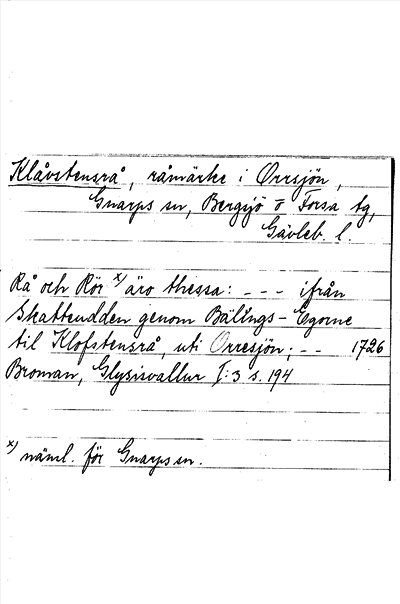 Klåvstensrå, råmärke i Orrsjön,
Gnarps sn, Bergsjö o Forsa tg,
Gävleb. l.
Rå och Rör x) äro thessa: - - - ifrån
Skatteudden genom Bälings-Egorne
til Klofstensrå, uti Orresjön; - - 1726
Broman, Glysisvallur I:3 s. 194
x) näml. för Gnarps sn.